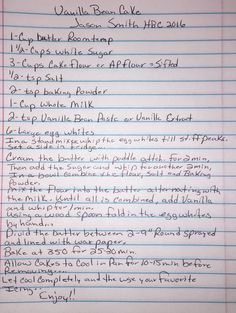 Vanilla Bean Cake
Jason Smith HBC 2016
1-Cup butter Roomtemp
1½-Cups white Sugar
3-Cups Cake Flour or AP flour = Sifted
1/2-tsp Salt
2-tsp baking Powder
1-Cup Whole Milk
2-tsp Vanilla Bean Paste or Vanilla Extract
6-Large egg whites
In a Stand mixer whip the egg whites till stiff peaks.
Set aside in fridge.
Cream the butter with paddle attch. for 2min,
Then add the Sugar and whip for another 2min.
In a bowl Combine the flour, Salt and Baking
Powder.
Mix the Flour into the batter alternating with
the Milk. Until all is combined, add Vanilla
and whip for 1min.
Using a wood Spoon fold in the egg whites
by hand.
Divid the batter between 2-9" Round sprayed
and lined with wax paper.
Bake at 350 for 25-30min.
Allow Cakes to Cool in Pan for 10-15min before
Removing...
Let cool Completely and the use your favorite
Icing!
Enjoy!!